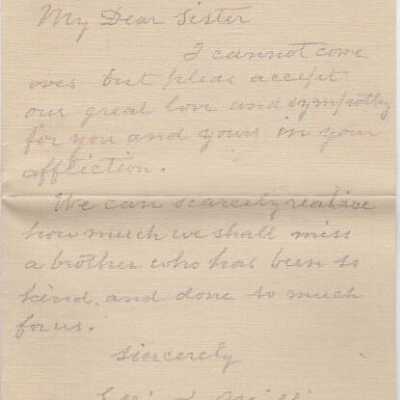 My Dear Sister
I cannot come
over but pleas accept
our great love and sympathy
for you and yours in your
affliction.
We can scarcely realise
how much we shall miss
a brother who has been so
kind, and done so much
for us.
Sincerely